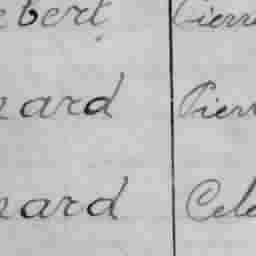 ebert Pierre
ard Pierr
ard Cele